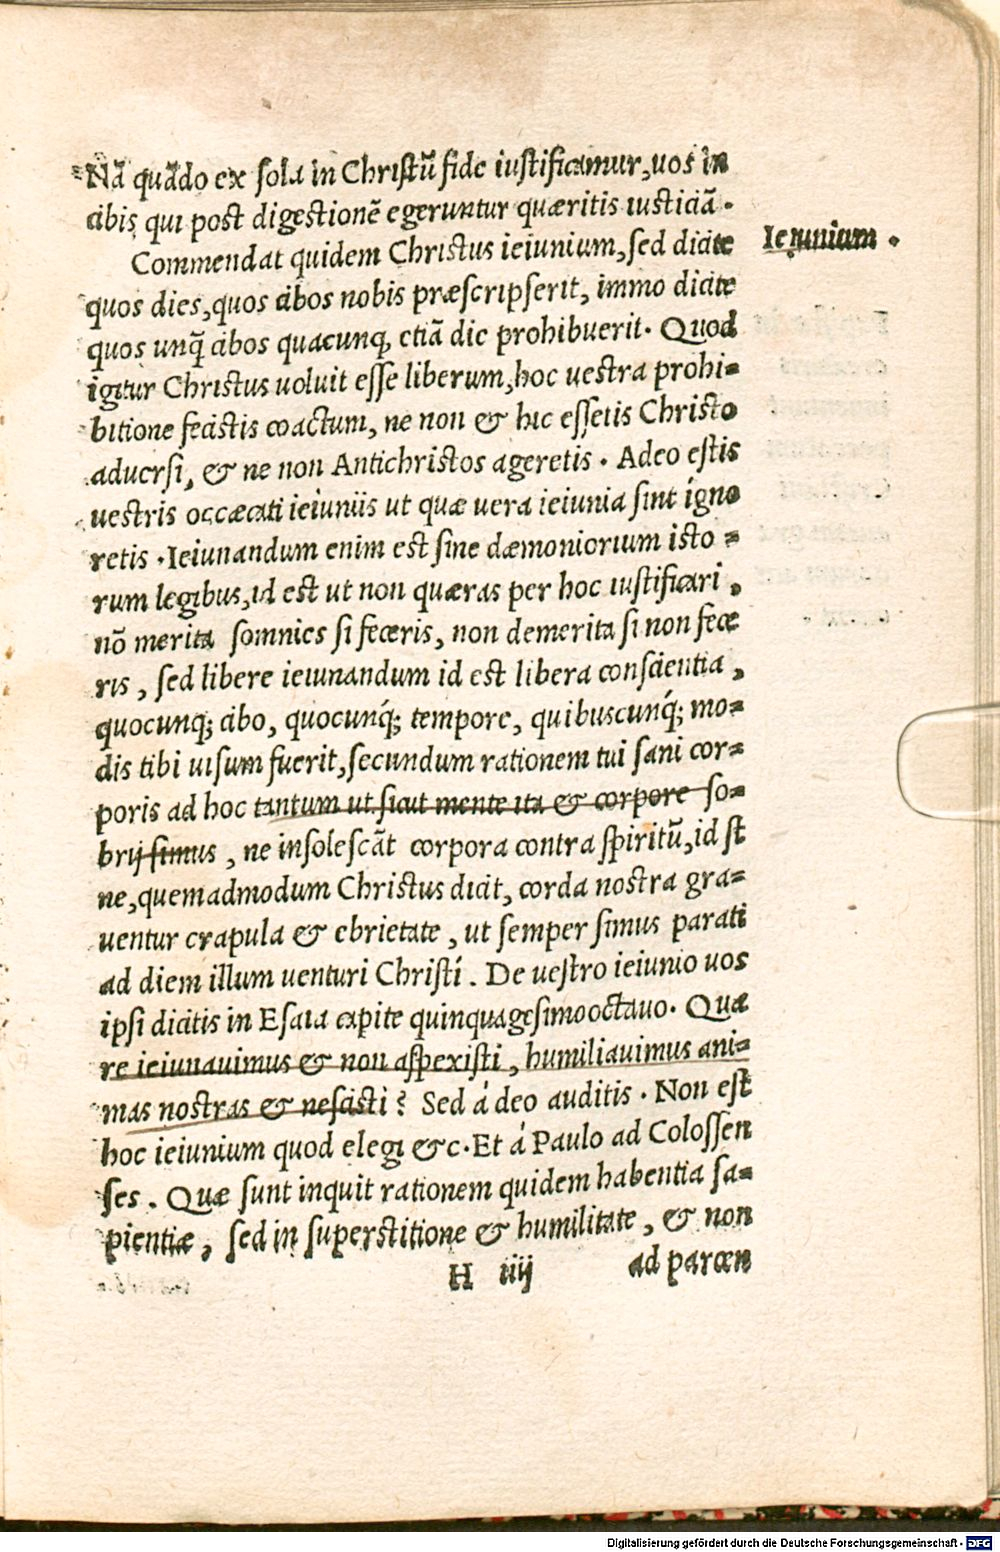 Nã quãdo ex sola in Christũ fide iustificamur, uos in
cibis qui post digestionẽ egeruntur quæritis iusticiã.
Commendat quidem Christus ieiunium, sed dicite
Ieiunium.
quos dies, quos cibos nobis præscripserit, immo dicite
quos unq̃ cibos quacunq; etiã die prohibuerit. Quod
igitur Christus uoluit esse liberum, hoc uestra prohi=
bitione fecistis coactum, ne non & hic essetis Christo
aduersi, & ne non Antichristos ageretis. Adeo estis
uestris occæcati ieiuniis ut quæ uera ieiunia sint igno
retis. Ieiunandum enim est sine dæmoniorum isto=
rum legibus, id est ut non quæras per hoc iustificari,
nõ merita somnies si feceris, non demerita si non fece
ris, sed libere ieiunandum id est libera conscientia,
quocunq; cibo, quocunq́; tempore, quibuscunq́; mo=
dis tibi uisum fuerit, secundum rationem tui sani cor=
poris ad hoc tantum ut sicut mente ita & corpore so=
brij simus, ne insolescãt corpora contra spiritũ, id st
ne, quemadmodum Christus dicit, corda nostra gra=
uentur crapula & ebrietate, ut semper simus parati
ad diem illum uenturi Christi. De uestro ieiunio uos
ipsi dicitis in Esaia capite quinquagesimooctauo. Qua
re ieiunauimus & non aspexisti, humiliauimus ani=
mas nostras & nescisti? Sed á deo auditis. Non est
hoc ieiunium quod elegi &c. Et á Paulo ad Colossen
ses. Quæ sunt inquit rationem quidem habentia sa=
pientiæ, sed in superstitione & humilitate, & non
H iiij ad parcen
Digitalisierung gefördert durch die Deutsche Forschungsgemeinschaft - DFG